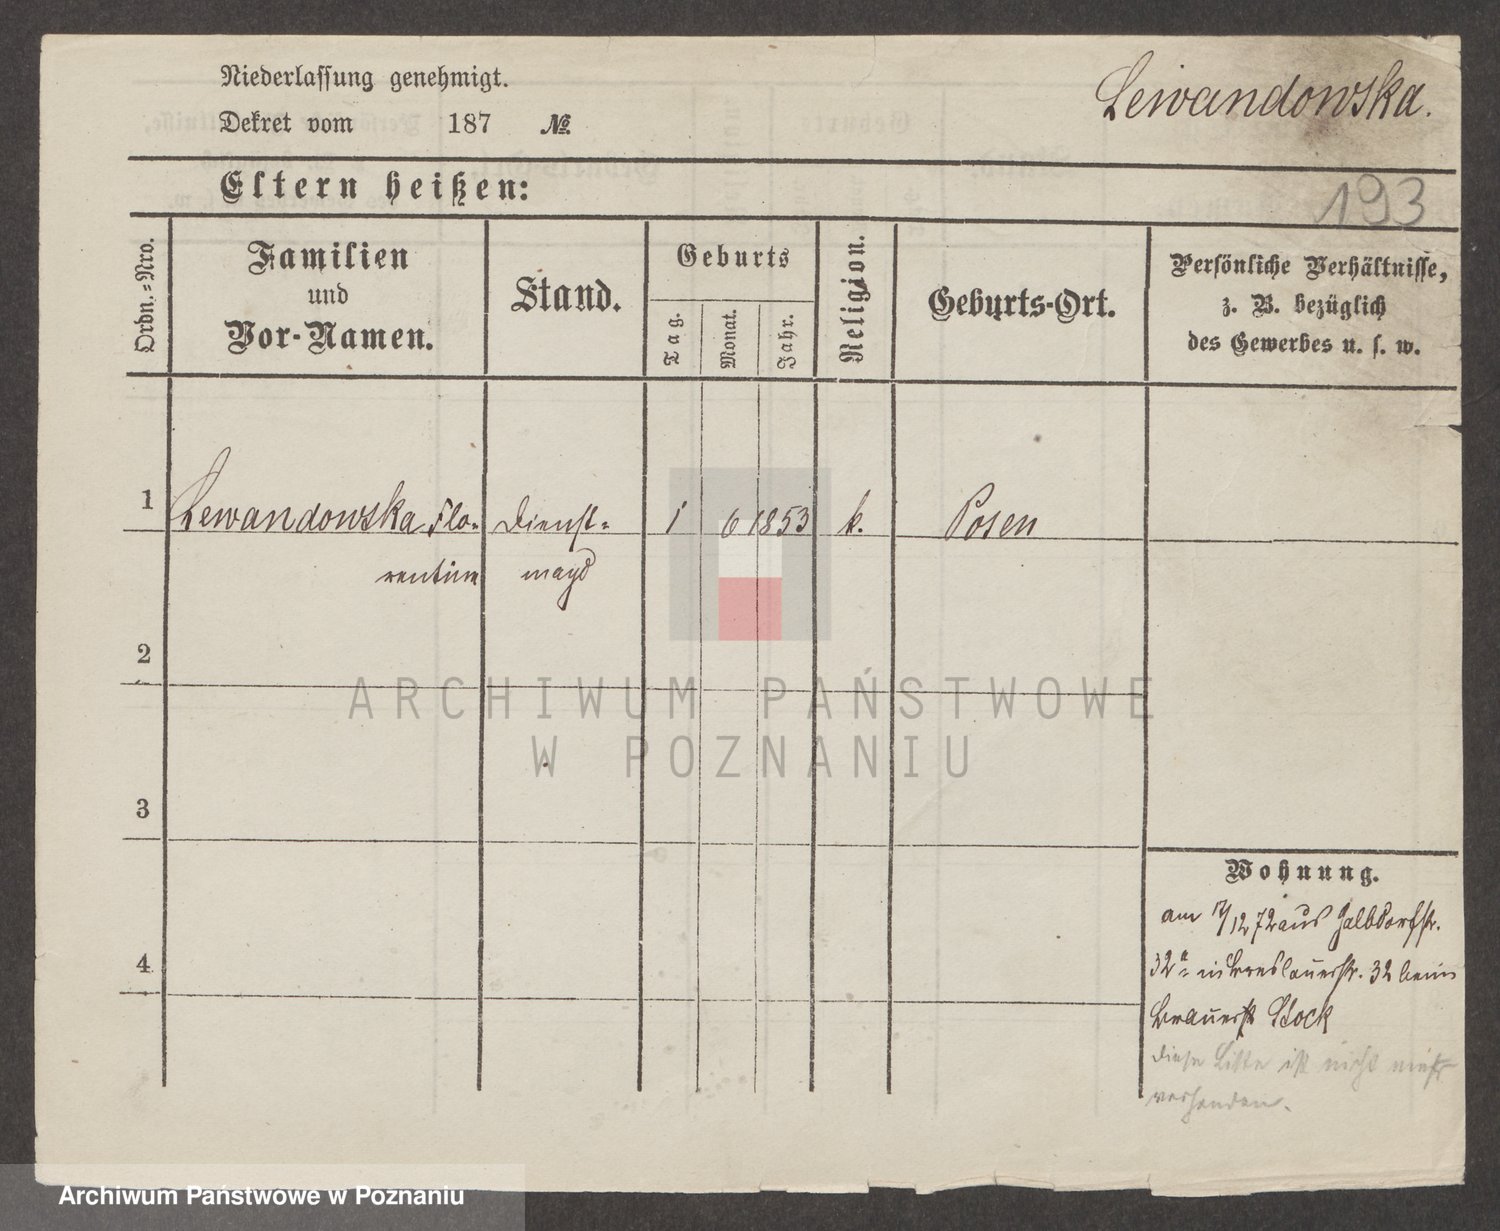 Niederlassung genehmigt.
Dekret vom 187 №
Lewandowska.
Eltern heißen:
193
Ordn.-Nro.
Familien
und
Vor-Namen.
Stand.
Geburts
Tag.
Monat.
Jahr.
Religion.
Geburts-Ort.
Persönliche Verhältnisse,
z. B. bezüglich
des Gewerbes u. s. w.
1 Lewandowska Flo- Dienst- 1 6 1853 k. Posen
rentine magd
2
3
4
Wohnung.
am 17/12 72 aus Halbdorfstr.
32a in Breslauerstr. 32 beim
Stock
diese Liste ist nicht mehr
vorhanden.
ARCHIWUM PAŃSTWOWE
W POZNANIU
Archiwum Państwowe w Poznaniu